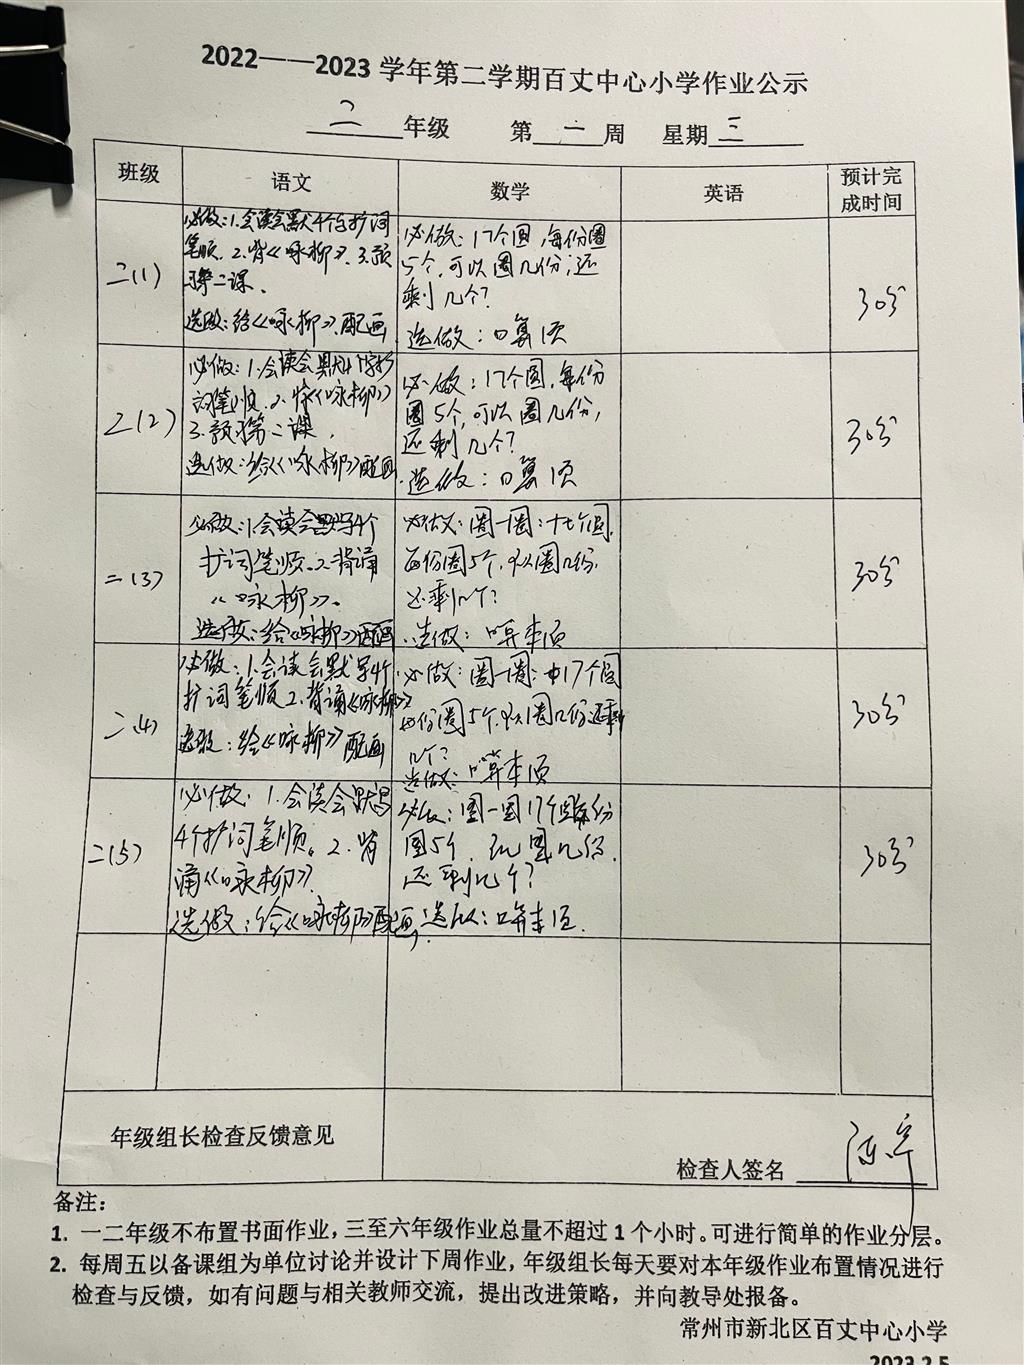 2022——2023 学年第二学期百丈中心小学作业公示
二 年级 第 一 周 星期 三
班级 语文 数学 英语 预计完成时间
二(1)
必做:1.会读会默4个字扩词
笔顺. 2.背《咏柳》. 3.预
习第二课.
选做:给《咏柳》配画
必做:17个圆,每份圈
5个,可以圈几份;还
剩几个?
选做:口算1页
30分
二(2)
必做:1.会读会默4个字扩
词笔顺.2.背《咏柳》
3.预习第二课.
选做:给《咏柳》配画.
必做:17个圆,每份
圈5个,可以圈几份,
还剩几个?
选做:口算1页
30分
二(3)
必做:1.会读会默写4个
扩词笔顺.2.背诵
《咏柳》.
选做:给《咏柳》配画
必做:圈一圈:十七个圆,
每份圈5个,可以圈几份,
还剩几个?
选做:口算本1页
30分
二(4)
必做:1.会读会默写4个
扩词笔顺 2.背诵《咏柳》
选做:给《咏柳》配画
必做:圈一圈:17个圆
每份圈5个,可以圈几份还剩
几个?
选做:口算本1页
30分
二(5)
必做:1.会读会默写
4个扩词笔顺。2.背
诵《咏柳》.
选做:给《咏柳》配画,
必做:圈一圈17个圆每份
圈5个.可以圈几份.
还剩几个?
选做:口算本1页.
30分
年级组长检查反馈意见
检查人签名
备注:
1. 一二年级不布置书面作业,三至六年级作业总量不超过 1 个小时。可进行简单的作业分层。
2. 每周五以备课组为单位讨论并设计下周作业,年级组长每天要对本年级作业布置情况进行
检查与反馈,如有问题与相关教师交流,提出改进策略,并向教导处报备。
常州市新北区百丈中心小学
2023.2.5